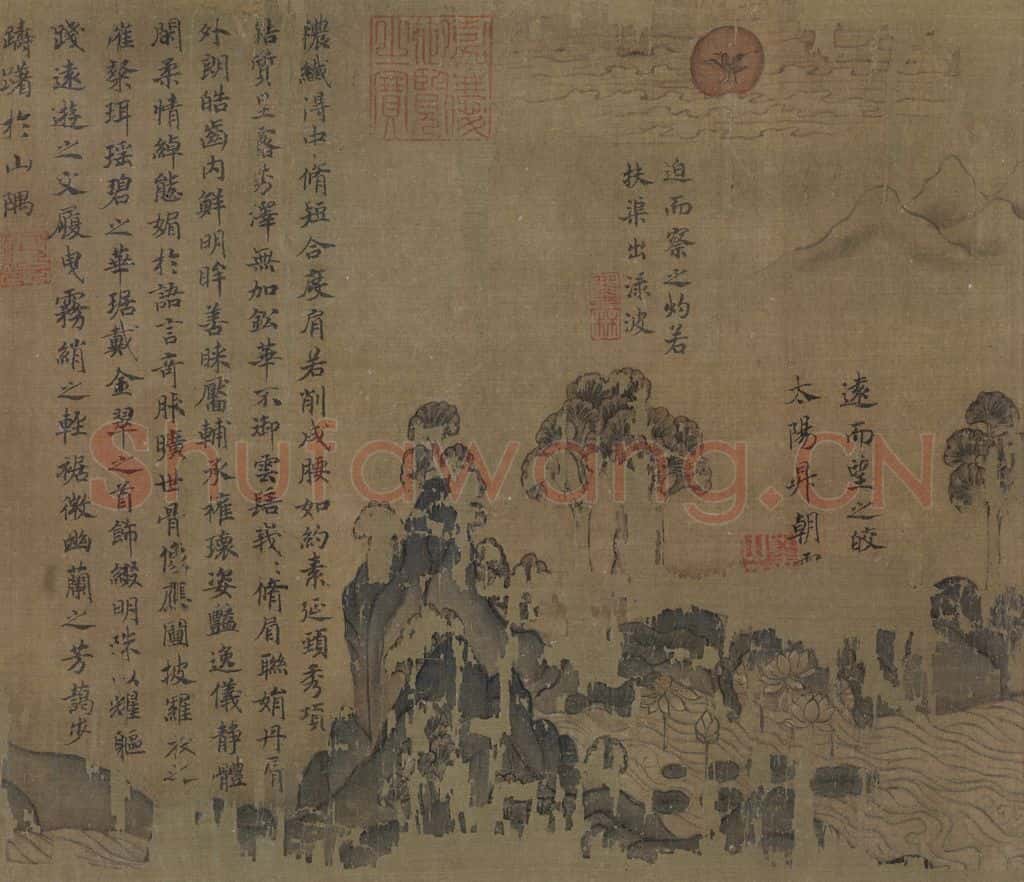 遠而望之皎
太陽升朝
迫而察之灼若
扶渠出淥波
濃纖得中脩短合度肩若削成腰如約素延頸秀項
皓質呈露芳澤無加鈆華不御雲髻峩〻脩眉聯娟丹脣
外朗皓齒內鮮明眸善睞靨輔承權瓌姿豔逸儀靜體
閑柔情綽態媚於語言奇服曠世骨像應圖披羅衣之
璀粲珥瑶碧之華琚戴金翠之首飾綴明珠以耀軀
踐遠遊之文履曳霧綃之輕裾微幽蘭之芳藹步
躊躇於山隅
Shufawang.CN